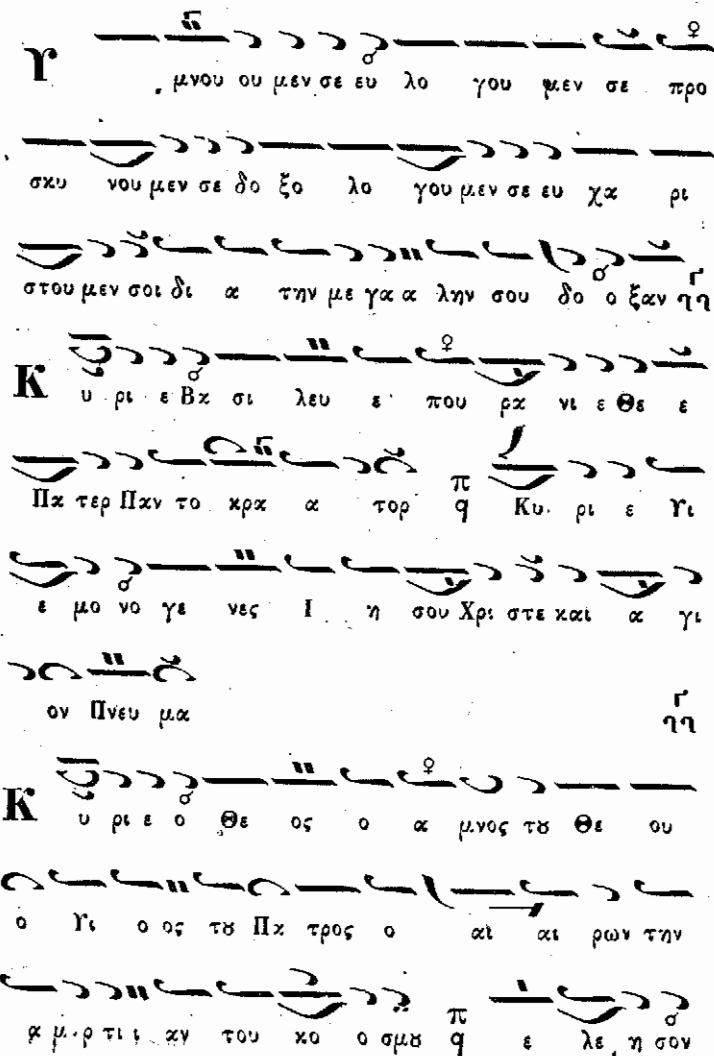 Υ μνου ου μεν σε ευ λο γου μεν σε προ
σκυ νου μεν σε δο ξο λο γου μεν σε ευ χα ρι
στου μεν σοι δι α την με γα α λην σου δο ο ξαν
Κ υ ρι ε Βα σι λευ ε που ρα νι ε Θε ε
Πα τερ Παν το κρα α τορ π q Κυ ρι ε Υι
ε μο νο γε νες Ι η σου Χρι στε καὶ α γι
ον Πνευ μα
Κ υ ρι ε ο Θε ος ο α μνος τȣ Θε ου
ο Υι ο ος τȣ Πα τρος ο αὶ αι ρων την
α μαρ τι ι αν του κο ο σμȣ π q ε λε η σον